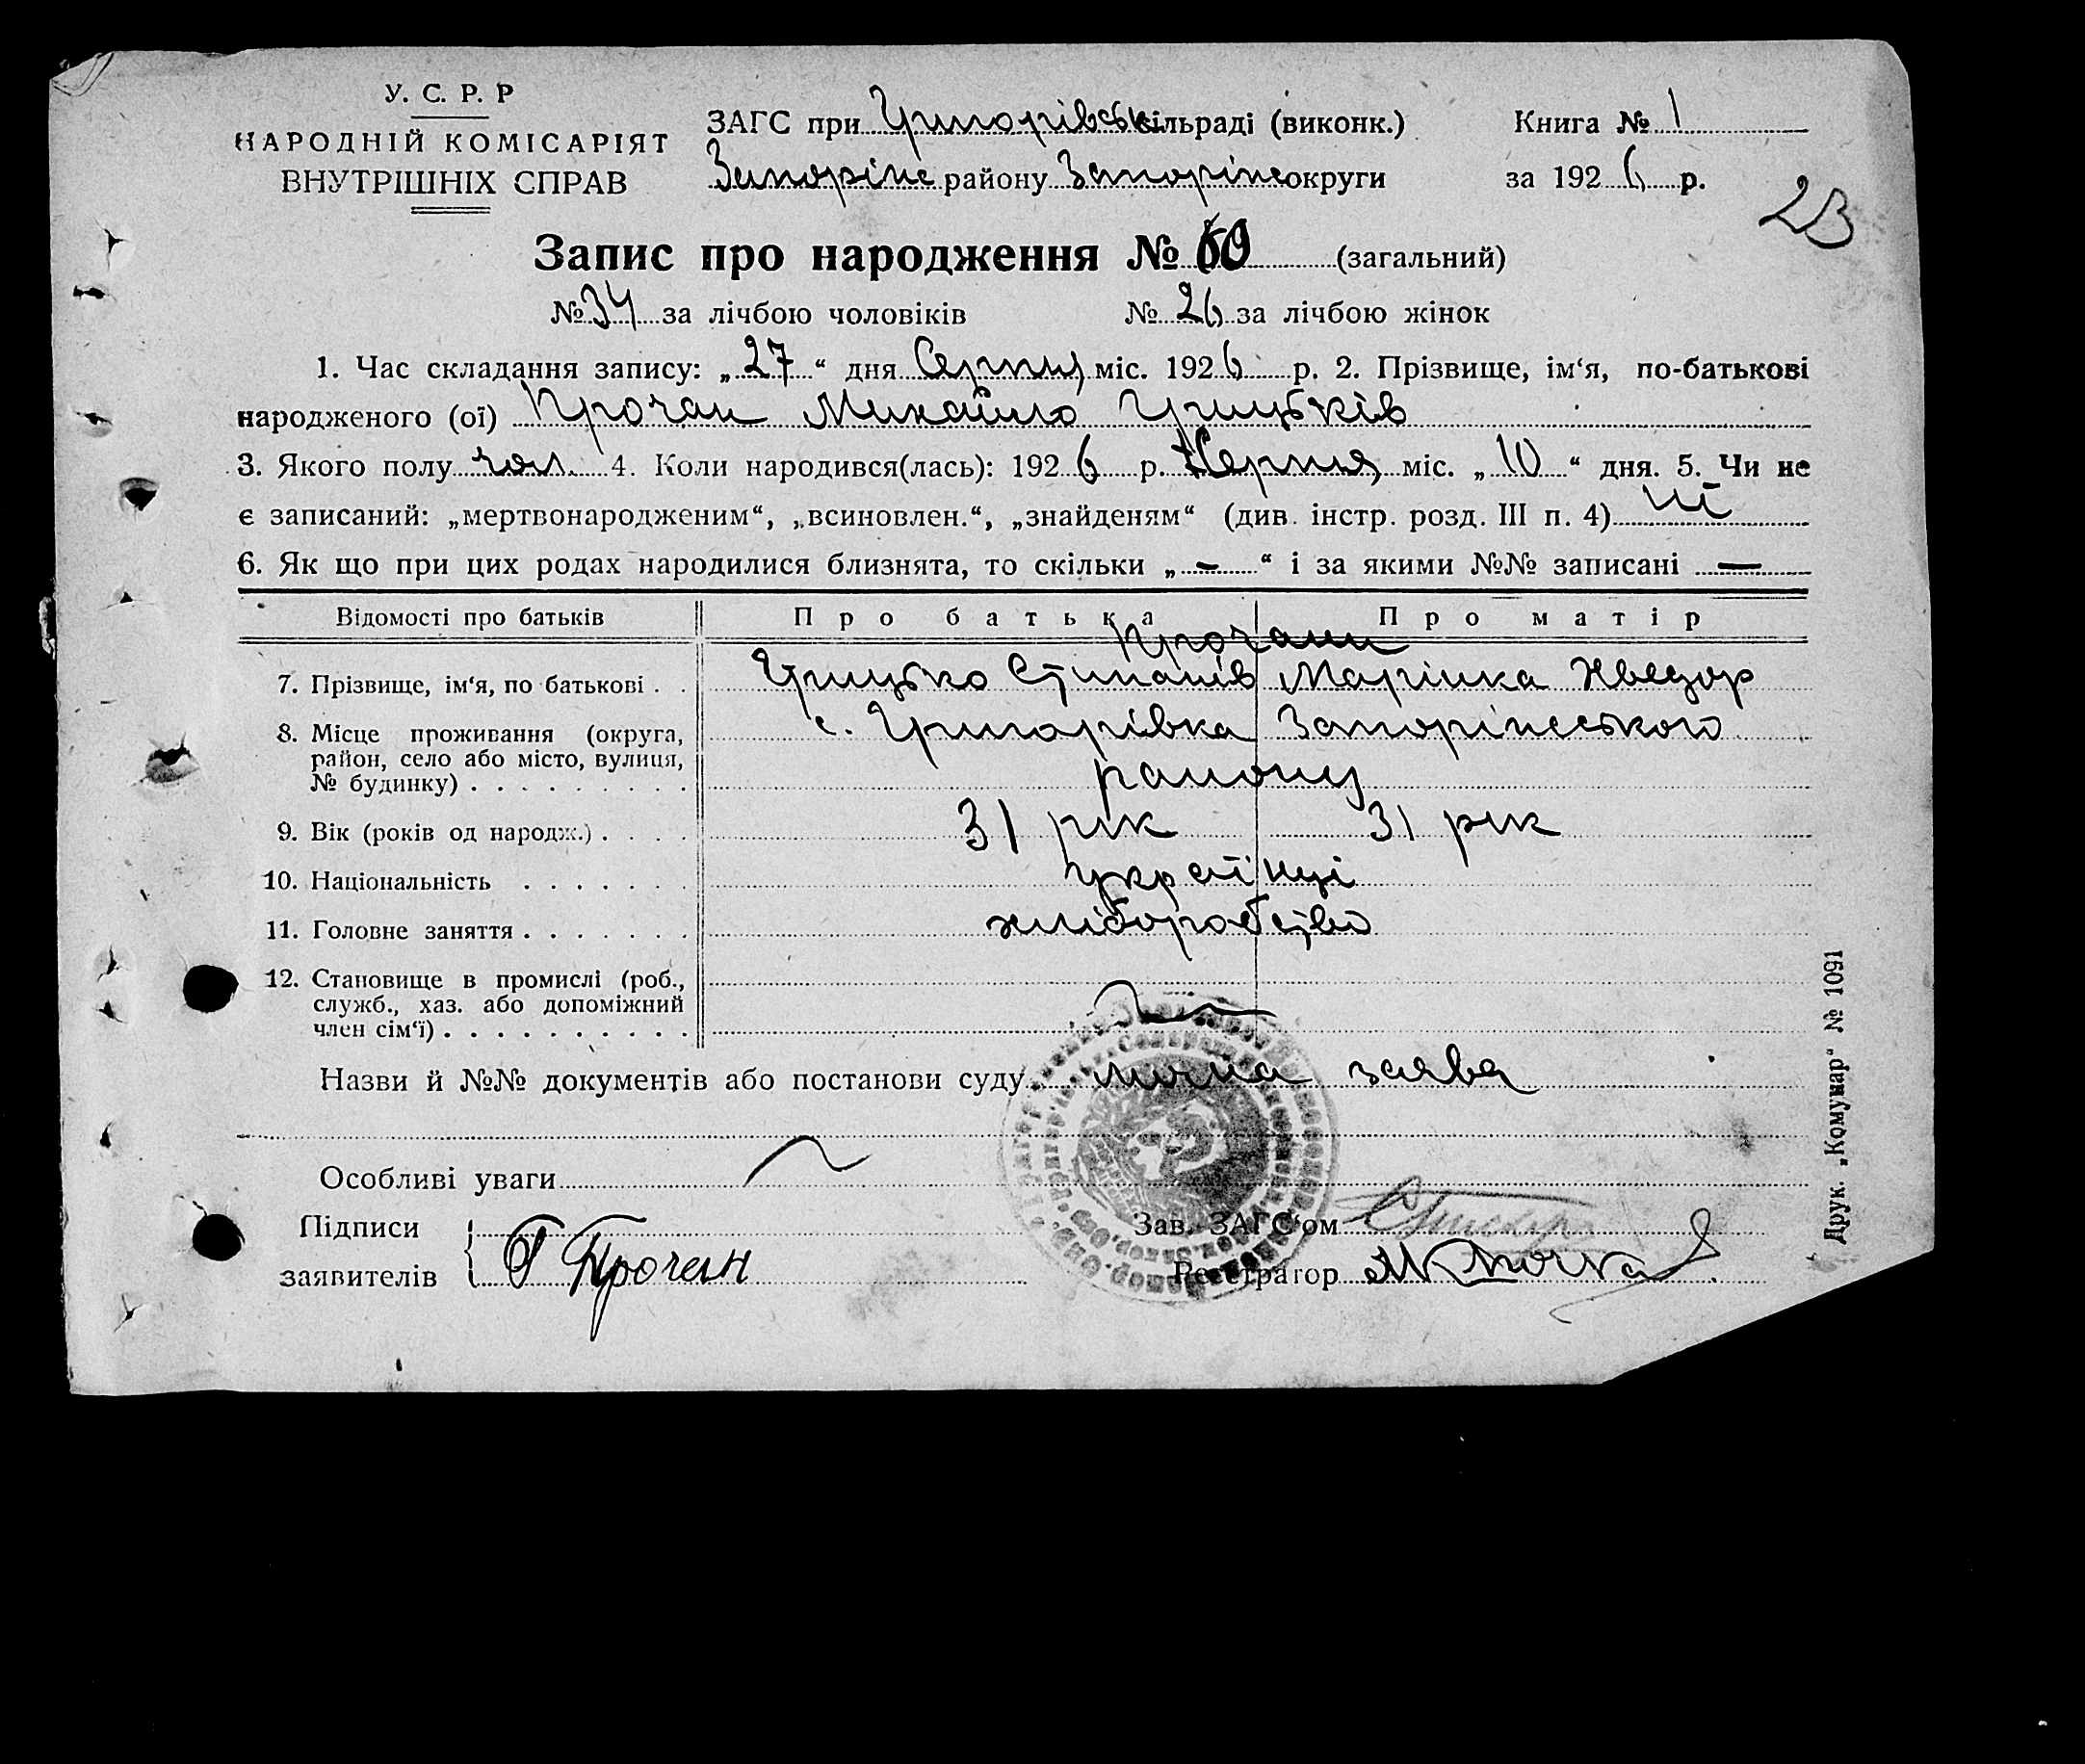 У. С. Р. Р
НАРОДНІЙ КОМІСАРІЯТ
ВНУТРІШНІХ СПРАВ
ЗАГС при Григорівськ. сільраді (виконк.)
Запоріж району Запоріж округи
Книга № 1
за 1926 р.
23
Запис про народження № 60 (загальний)
№ 34 за лічбою чоловіків № 26 за лічбою жінок
1. Час складання запису: „27“ дня Серпня міс. 1926 р. 2. Прізвище, ім‘я, по-батькові
народженого (ої) Прочан Михайло Грицьків
3. Якого полу чол. 4. Коли народився(лась): 1926 р. Серпня міс. „10“ дня. 5. Чи не
є записаний: „мертвонародженим“, „всиновлен.“, „знайденям“ (див. інстр. розд. III п. 4) ні
6. Як що при цих родах народилися близнята, то скільки „—“ і за якими №№ записані —
Відомості про батьків Про батька Про матір
Прочани
7. Прізвище, ім‘я, по батькові . . Грицько Степанів Марінка Хведор
8. Місце проживання (округа, с. Григорівка Запоріжського
район, село або місто, вулиця,
№ будинку) . . . . . . . . . району
9. Вік (років од народж.) . . . . 31 рік 31 рік
10. Національність . . . . . . . Українці
11. Головне заняття . . . . . . . хліборобство
12. Становище в промислі (роб.,
служб., хаз. або допоміжний
член сім‘ї) . . . . . . . . . .
Назви й №№ документів або постанови суду мочна заява
Особливі уваги
Підписи
заявителів Г Прочан
Зав. ЗАГС‘ом
Реєстратор
Друк. „Комунар“ № 1091